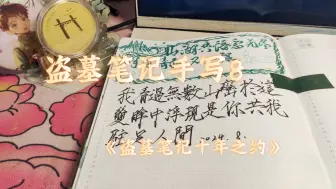 盗墓笔记手写8
我看過無數山巒於這
雙眸中浮現是你共我
人間 2024.8.
《盗墓笔记十年之约》